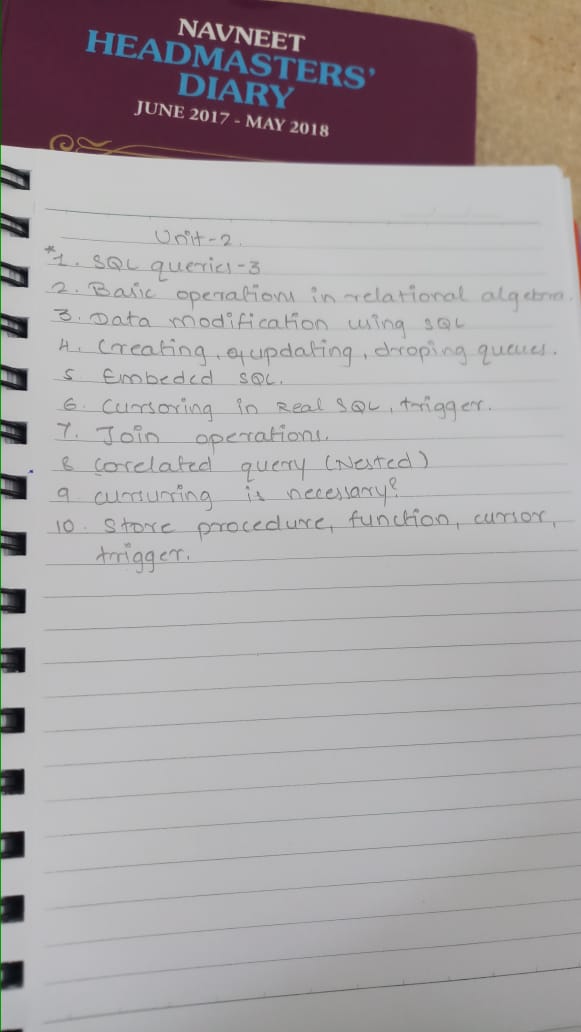 NAVNEET
HEADMASTERS'
DIARY
JUNE 2017 - MAY 2018
Unit-2.
*1. SQL queries-3
2. Basic operations in relational algebra.
3. Data modification using SQL
4. Creating, updating, droping queues.
5 Embeded SQL.
6. Cursoring in Real SQL, trigger.
7. Join operations.
8 Corelated query (Nested)
9 cursurring is necessary?
10. Store procedure, function, cursor,
trigger.